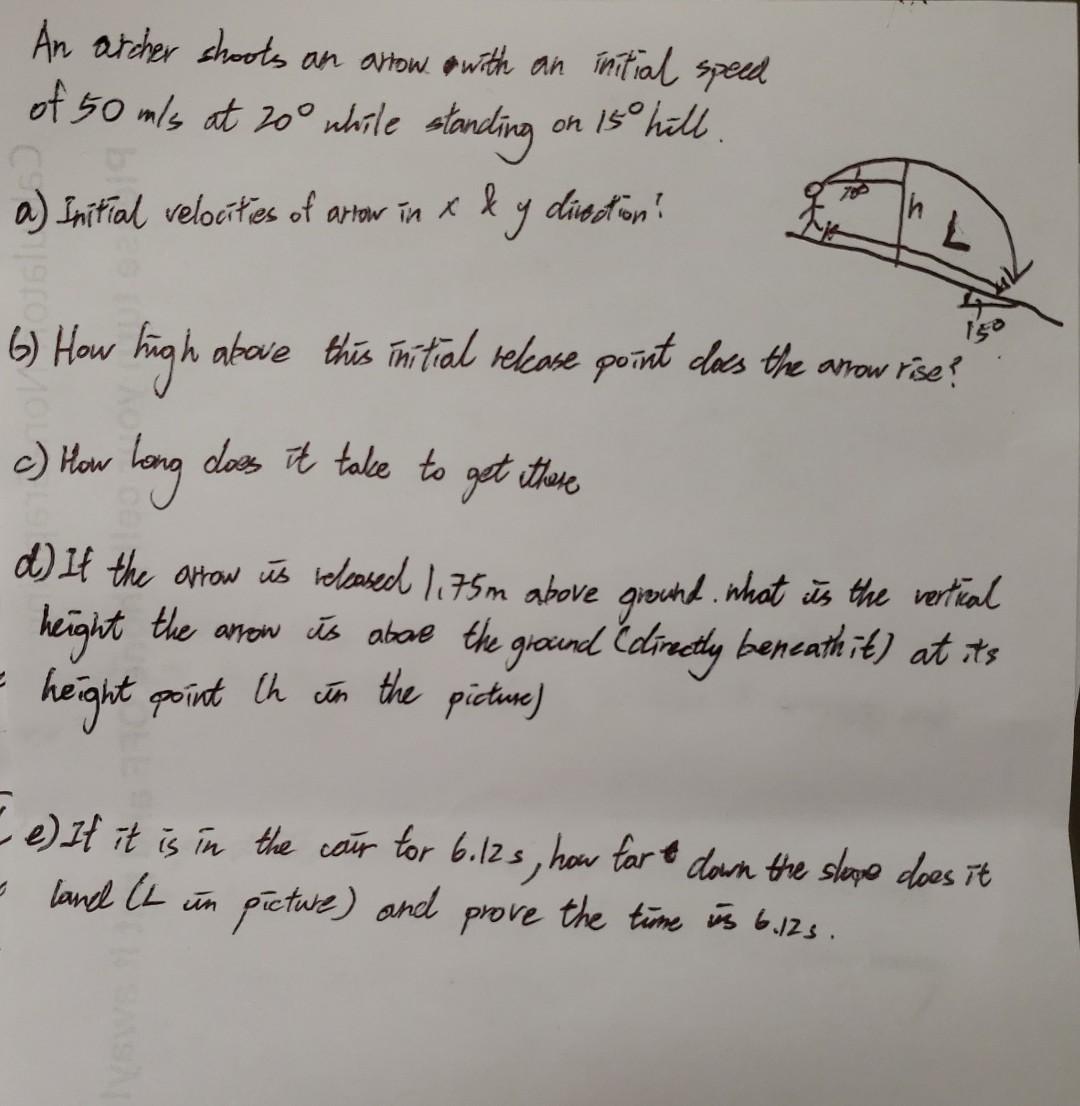 An archer shoots an arrow with an initial speed
of 50 m/s at 20° while standing on 15° hill.
a) Initial velocities of arrow in x & y direction?
20°
h
L
15°
b) How high above this initial release point does the arrow rise?
c) How long does it take to get there
d) If the arrow is released 1.75m above ground. what is the vertical
height the arrow is above the ground (directly beneath it) at its
height point (h in the picture)
e) If it is in the air for 6.12s, how far down the slope does it
land (L in picture) and prove the time is 6.12s.